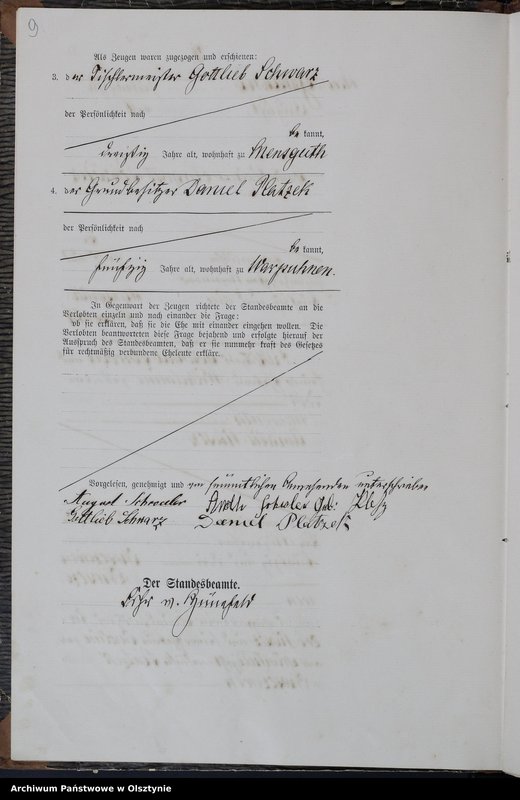 9
Als Zeugen waren zugezogen und erschienen:
3. der Tischlermeister Gottlieb Schwarz
der Persönlichkeit nach
be kannt,
Jahre alt, wohnhaft zu Mensguth
4. der Grundbesitzer Daniel Platzek
der Persönlichkeit nach
be kannt,
fünfzig Jahre alt, wohnhaft zu Warpuhnen.
In Gegenwart der Zeugen richtete der Standesbeamte an die
Verlobten einzeln und nach einander die Frage:
ob sie erklären, daß sie die Ehe mit einander eingehen wollen. Die
Verlobten beantworteten diese Frage bejahend und erfolgte hierauf der
Ausspruch des Standesbeamten, daß er sie nunmehr kraft des Gesetzes
für rechtmäßig verbundene Eheleute erkläre.
Vorgelesen, genehmigt und von sämmtlichen Anwesenden unterschrieben
August Schroeder
Gottlieb Schwarz Daniel Platzek
Der Standesbeamte.
Archiwum Państwowe w Olsztynie